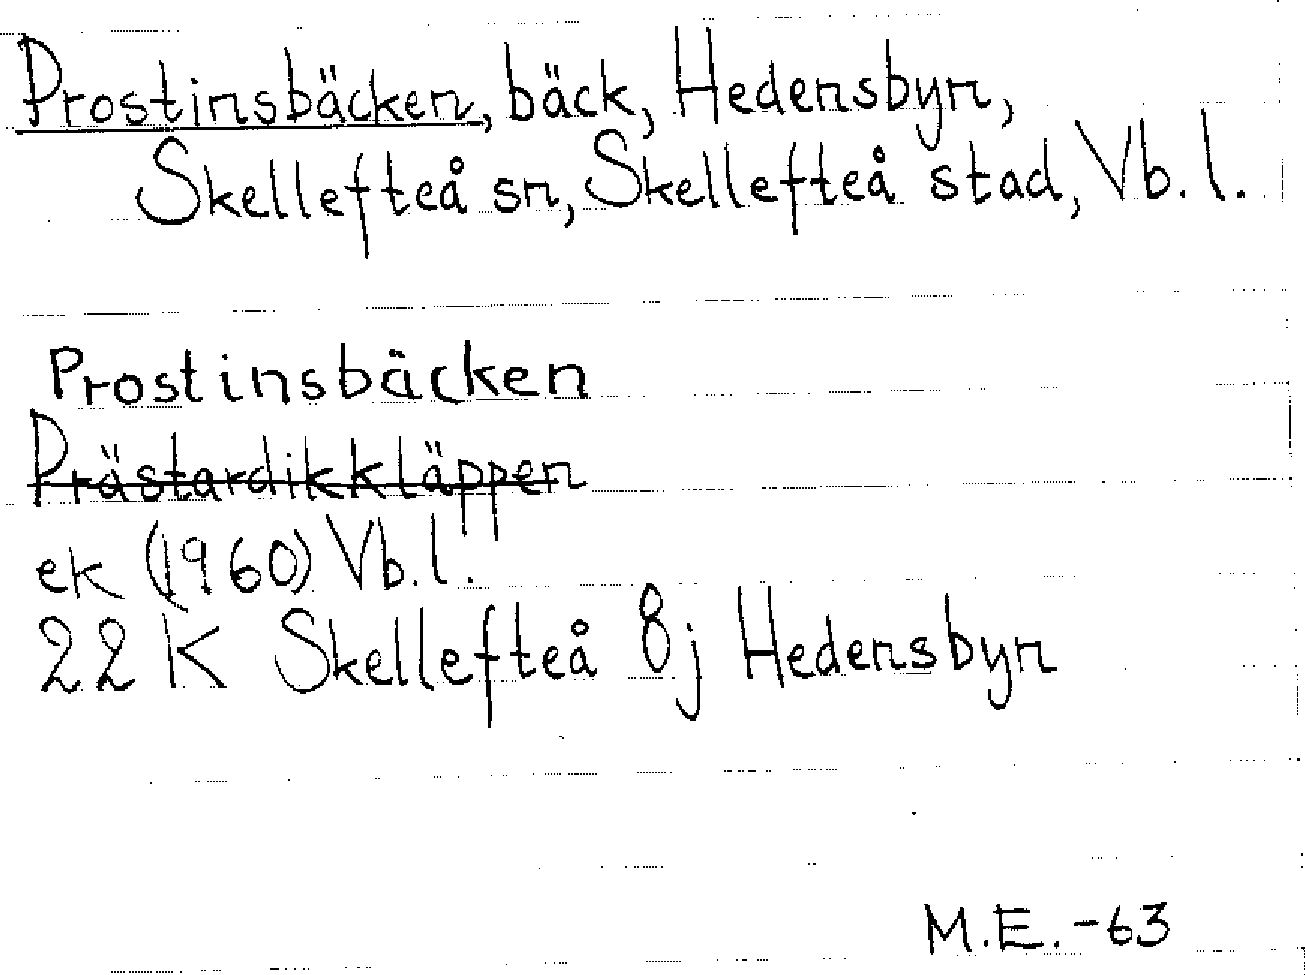 Prostinsbäcken, bäck, Hedensbyn,
Skellefteå sn, Skellefteå stad, Vb. l.
Prostinsbäcken
Prästardikkläppen
ek (1960) Vb. l.
22 K Skellefteå 8j Hedensbyn
M.E. -63